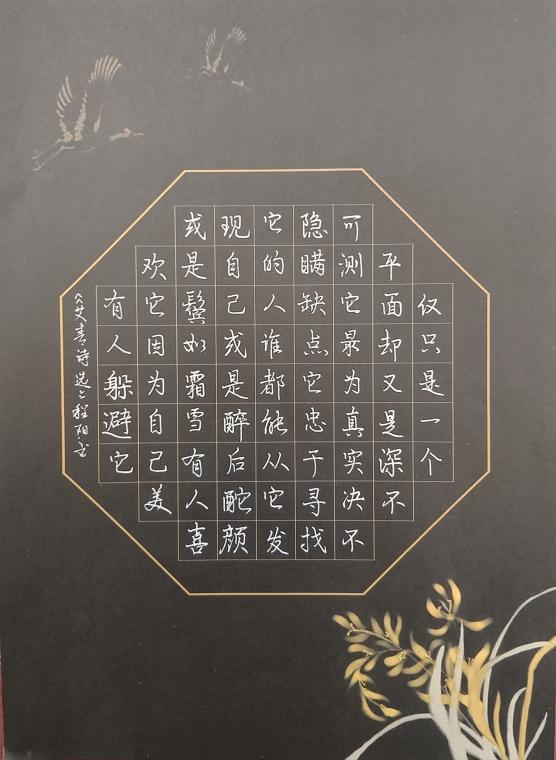 仅只是一个
平面却又是深不
可测它最为真实决不
隐瞒缺点它忠于寻找
它的人谁都能从它发
现自己或是醉后酡颜
或是鬓如霜雪有人喜
欢它因为自己美
有人躲避它
《艾青诗选》程阳书